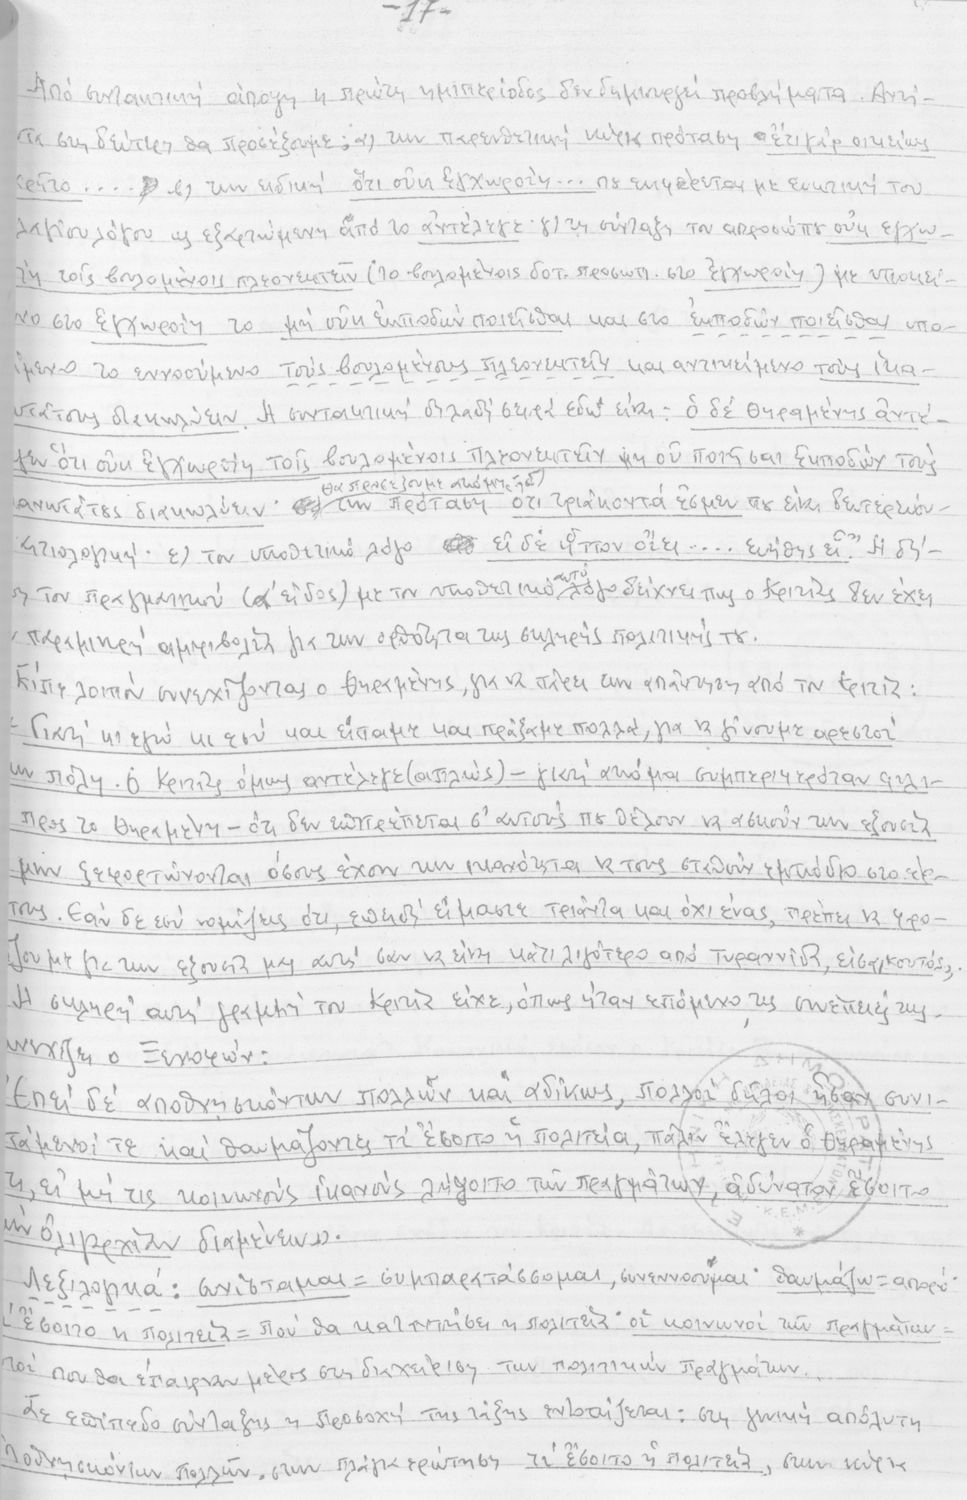 -17-
Από συντακτική άποψη η πρώτη ημιπερίοδος δεν δημιουργεί προβλήματα. Αντί-
στη δεύτερη θα προσέξουμε: α) την παρενθετική κύρια πρόταση «ἔτι γάρ οἰκείως
.... β) την ειδική ὅτι οὐκ ἐγχωροίη... που εκφέρεται με ευκτική του
πλαγίου λόγου ως εξαρτώμενη ἀπό το ἀντέλεγε· γ) τη σύνταξη του απροσώπου οὐκ ἐγχω-
τοῖς βουλομένοις πλεονεκτεῖν (το βουλομένοις δοτ. προσωπ. στο ἐγχωροίη) με υποκεί-
νο στο ἐγχωροίη το μή οὐκ ἐκποδών ποιεῖσθαι και στο ἐκποδών ποιεῖσθαι υπο-
μενο το εννοούμενο τούς βουλομένους πλεονεκτεῖν και αντικείμενο τούς ἱκα-
νωτάτους διακωλύειν. Η συντακτική δηλαδή σειρά εδώ είναι: ὁ δέ Θηραμένης ἀντέ-
γεν ὅτι οὐκ ἐγχωροίη τοῖς βουλομένοις πλεονεκτεῖν μή οὐ ποιῆσαι ἐκποδών τούς
ἱκανωτάτους διακωλύειν· θα προσέξουμε ακόμη δ) την πρόταση ὅτι τριάκοντά ἐσμεν που είναι δευτερεύου-
αιτιολογική· ε) τον υποθετικό λόγο εἰ δέ ἧττον οἴει .... εὐήθης εἶ». Η δή-
ση του πραγματικού (α' είδος) με τον υποθετικό αυτό λόγο δείχνει πως ο Κριτίας δεν έχει
παραμικρή αμφιβολία για την ορθότητα της σκληρής πολιτικής του.
Είπε λοιπόν συνεχίζοντας ο Θηραμένης, για να πάρει την απάντηση από τον Κριτία:
- Γιατί κι εγώ κι εσύ και είπαμε και πράξαμε πολλά, για να γίνουμε αρεστοί
την πόλη. Ο Κριτίας όμως αντέλεγε (απλώς) - γιατί ακόμα συμπεριφερόταν φιλι-
προς το Θηραμένη - ότι δεν επιτρέπεται σ' αυτούς που θέλουν να ασκούν την εξουσία
μην ξεφορτώνονται όσους έχουν την ικανότητα να τους σταθούν εμπόδιο στο έρ-
τους. Εάν δε εσύ νομίζεις ότι, επειδή είμαστε τριάντα και όχι ένας, πρέπει να φρο-
ζουμε για την εξουσία μας αυτή σαν να είναι κάτι λιγότερο από τυραννίδα, είσαι κουτός».
Η σκληρή αυτή γραμμή του Κριτία είχε, όπως ήταν επόμενο, τις συνέπειές της.
Συνεχίζει ο Ξενοφών:
Ἐπεί δέ ἀποθνῃσκόντων πολλῶν καί ἀδίκως, πολλοί δῆλοι ἦσαν συνι-
στάμενοί τε καί θαυμάζοντες τί ἔσοιτο ἡ πολιτεία, πάλιν ἔλεγεν ὁ Θηραμένης
ὅτι, εἰ μή τις κοινωνούς ἱκανούς λήψοιτο τῶν πραγμάτων, ἀδύνατον ἔσοιτο
τήν ὀλιγαρχίαν διαμένειν».
Λεξιλογικά: συνίσταμαι = συμπαρατάσσομαι, συνεννοούμαι· θαυμάζω = απορώ·
τί ἔσοιτο η πολιτεία = πού θα καταντήσει η πολιτεία· οἱ κοινωνοί τῶν πραγμάτων =
τοί που θα έπαιρναν μέρος στη διαχείριση των πολιτικών πραγμάτων.
Σε επίπεδο σύνταξης η προσοχή της τάξης εντοπίζεται: στη γενική απόλυτη
ἀποθνῃσκόντων πολλῶν, στην πλάγια ερώτηση τί ἔσοιτο ἡ πολιτεία, στην κύρια